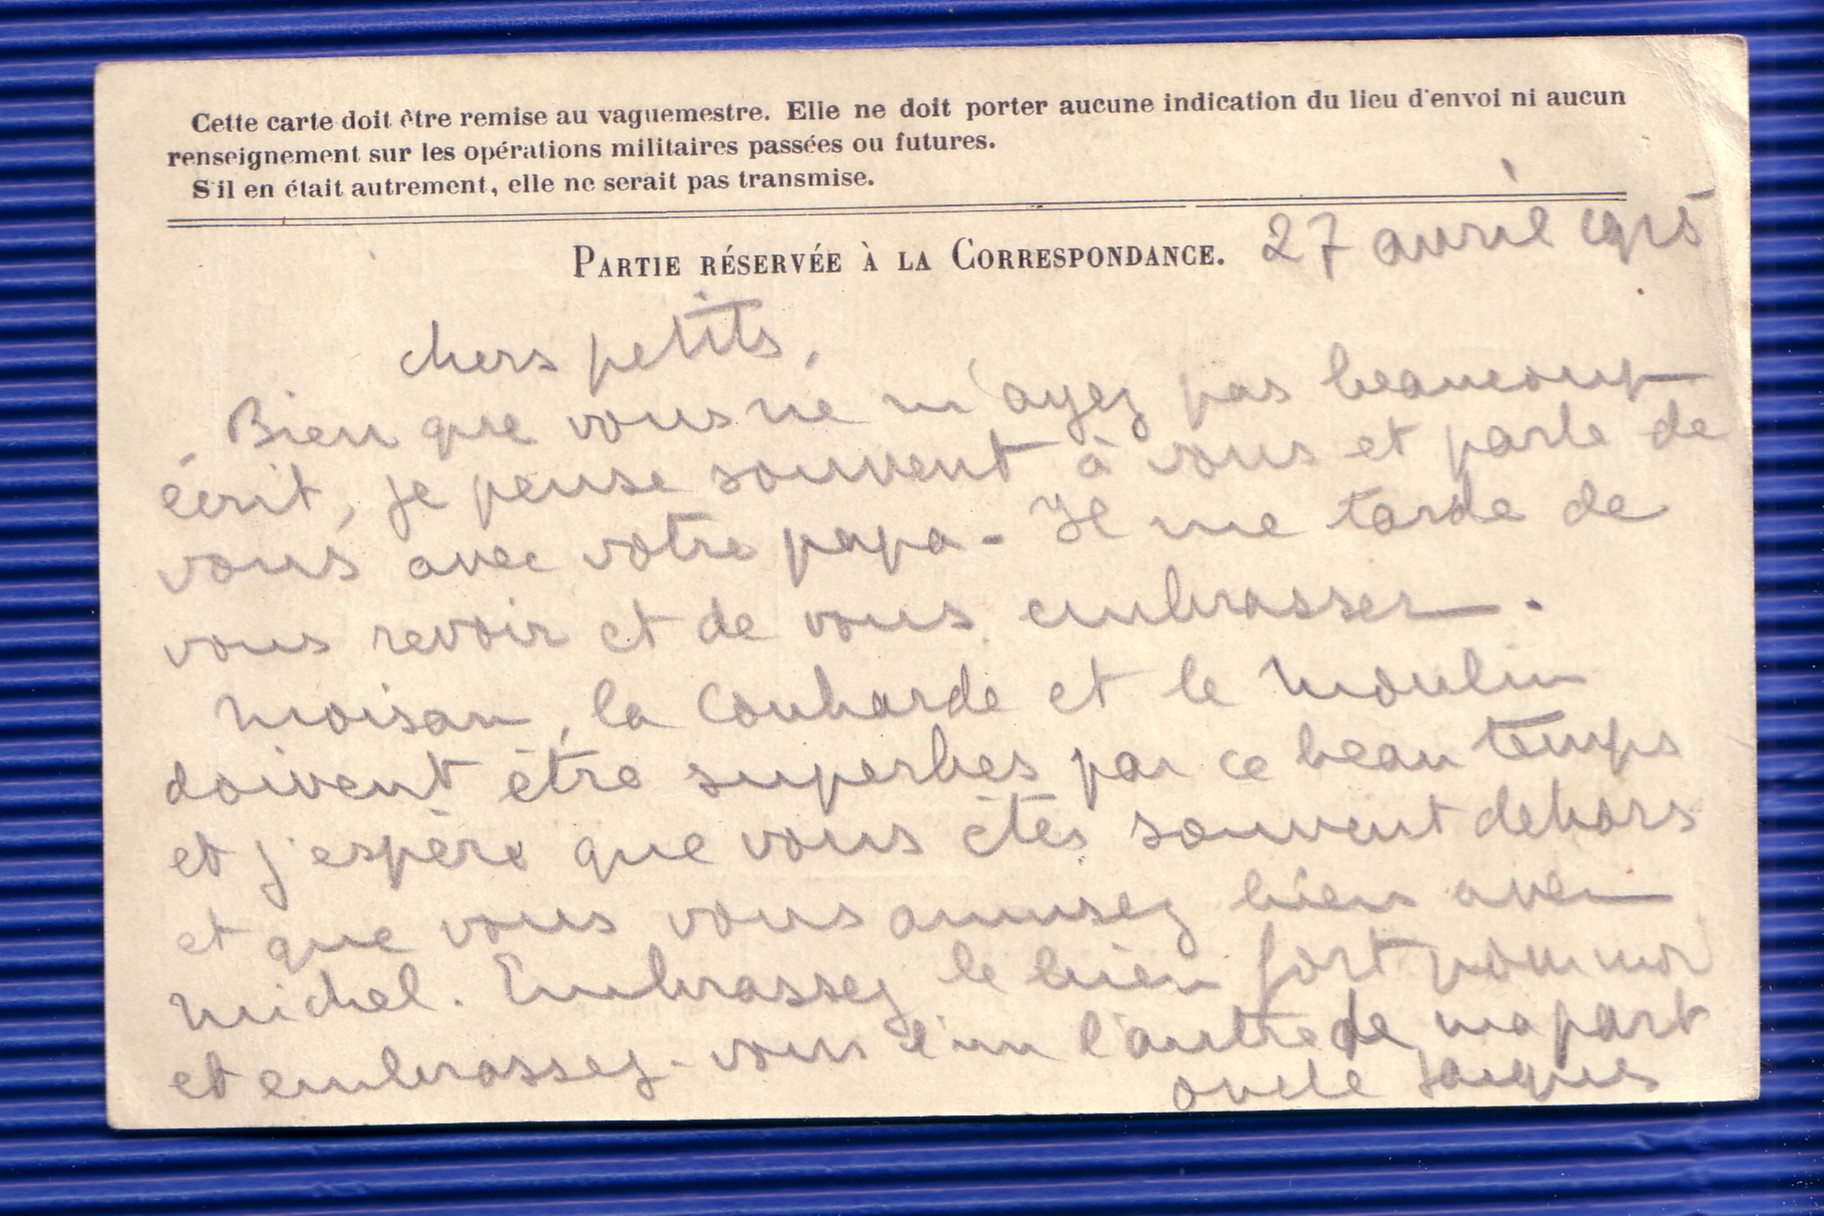 Cette carte doit être remise au vaguemestre. Elle ne doit porter aucune indication du lieu d'envoi ni aucun
renseignement sur les opérations militaires passées ou futures.
S'il en était autrement, elle ne serait pas transmise.
PARTIE RÉSERVÉE À LA CORRESPONDANCE. 27 avril 1915
chers petits,
Bien que vous ne m'ayez pas beaucoup
écrit, je pense souvent à vous et parle de
vous avec votre papa - Il me tarde de
vous revoir et de vous embrasser.
Moisan, la Couharde et le Moulin
doivent être superbes par ce beau temps
et j'espère que vous êtes souvent dehors
et que vous vous amusez bien avec
Michel. Embrassez le bien fort pour moi
et embrassez-vous l'un l'autre de ma part
oncle Jacques